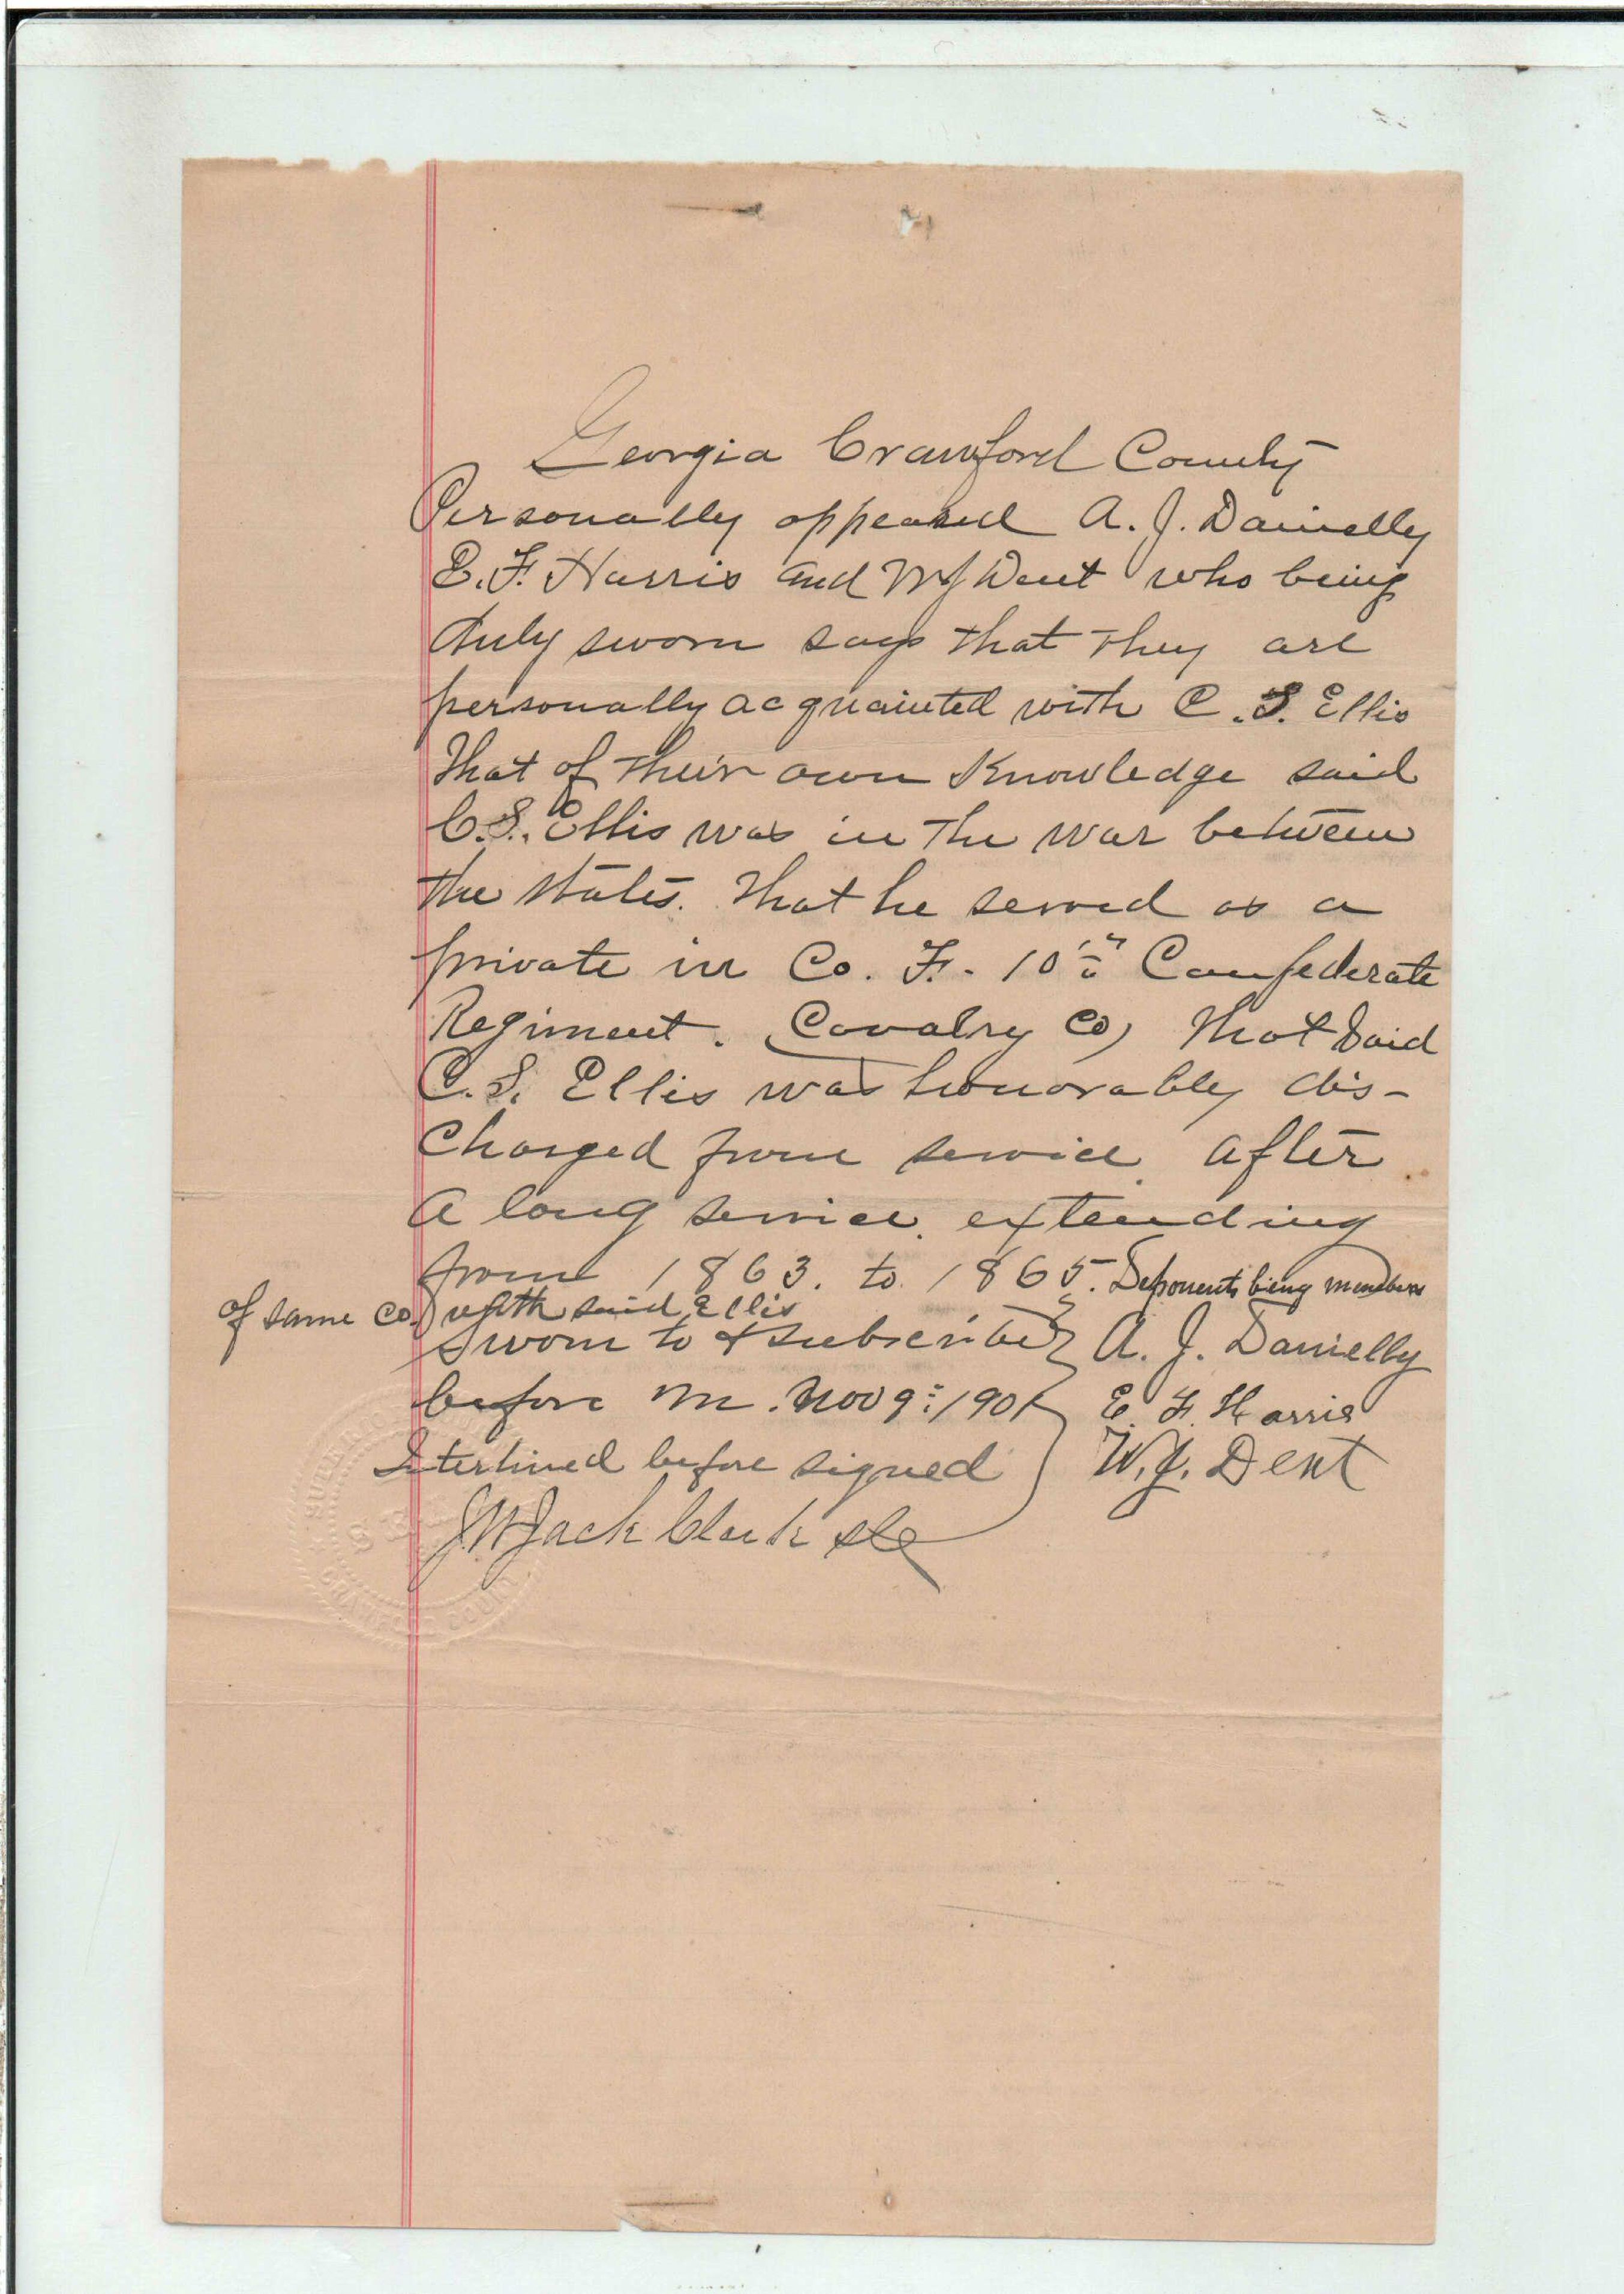 Georgia Crawford County
Personally appeared A. J. Danielly
E. F. Harris and W J Dent who being
duly sworn says that they are
personally acquainted with C. S. Ellis
that of their own Knowledge said
C. S. Ellis was in the war between
the states. that he served as a
private in Co. F. 10th Confederate
Regiment. (Cavalry Co) that said
C. S. Ellis was honorably dis-
charged from service after
a long service. extending
from 1863. to 1865. Deponents being members
of same co. with said Ellis
Sworn to & subscribe A. J. Danielly
before me. Nov 9th 1901 E. F. Harris
Interlined before signed W. J. Dent
J W Jack Clerk
CRAWFORD COUNTY